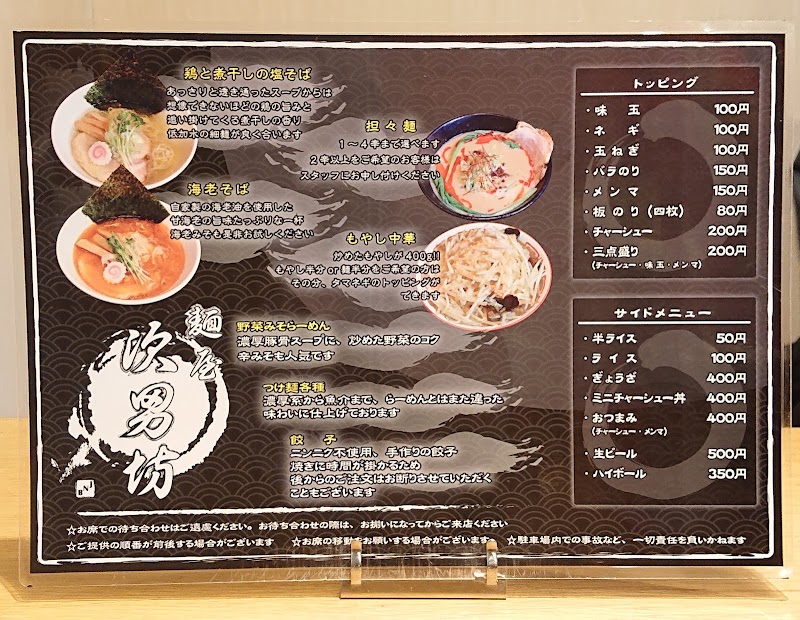 鶏と煮干しの塩そば
あっさりと透き通ったスープからは
想像できないほどの鶏の旨みと
追い掛けてくる煮干しの香り
低加水の細麺が良く合います
担々麺
1～4辛まで選べます
2辛以上をご希望のお客様は
スタッフにお申し付けください
海老そば
自家製の海老油を使用した
甘海老の旨味たっぷりな一杯
海老みそも是非お試しください
もやし中華
炒めたもやしが400g!!
もやし半分or麺半分をご希望の方は
その分、タマネギのトッピングが
できます
麺屋
次男坊
野菜みそらーめん
濃厚豚骨スープに、炒めた野菜のコク
辛みそも人気です
つけ麺各種
濃厚系から魚介まで、らーめんとはまた違った
味わいに仕上げております
餃子
ニンニク不使用、手作りの餃子
焼きに時間が掛かるため
後からのご注文はお断りさせていただく
こともございます
トッピング
・味玉 100円
・ネギ 100円
・玉ねぎ 100円
・バラのり 150円
・メンマ 150円
・板のり(四枚) 80円
・チャーシュー 200円
・三点盛り 200円
(チャーシュー・味玉・メンマ)
サイドメニュー
・半ライス 50円
・ライス 100円
・ぎょうざ 400円
・ミニチャーシュー丼 400円
・おつまみ 400円
(チャーシュー・メンマ)
・生ビール 500円
・ハイボール 350円
☆お席での待ち合わせはご遠慮ください。お待ち合わせの際は、お揃いになってからご来店ください
☆ご提供の順番が前後する場合がございます ☆お席の移動をお願いする場合がございます ☆駐車場内での事故など、一切責任を負いかねます